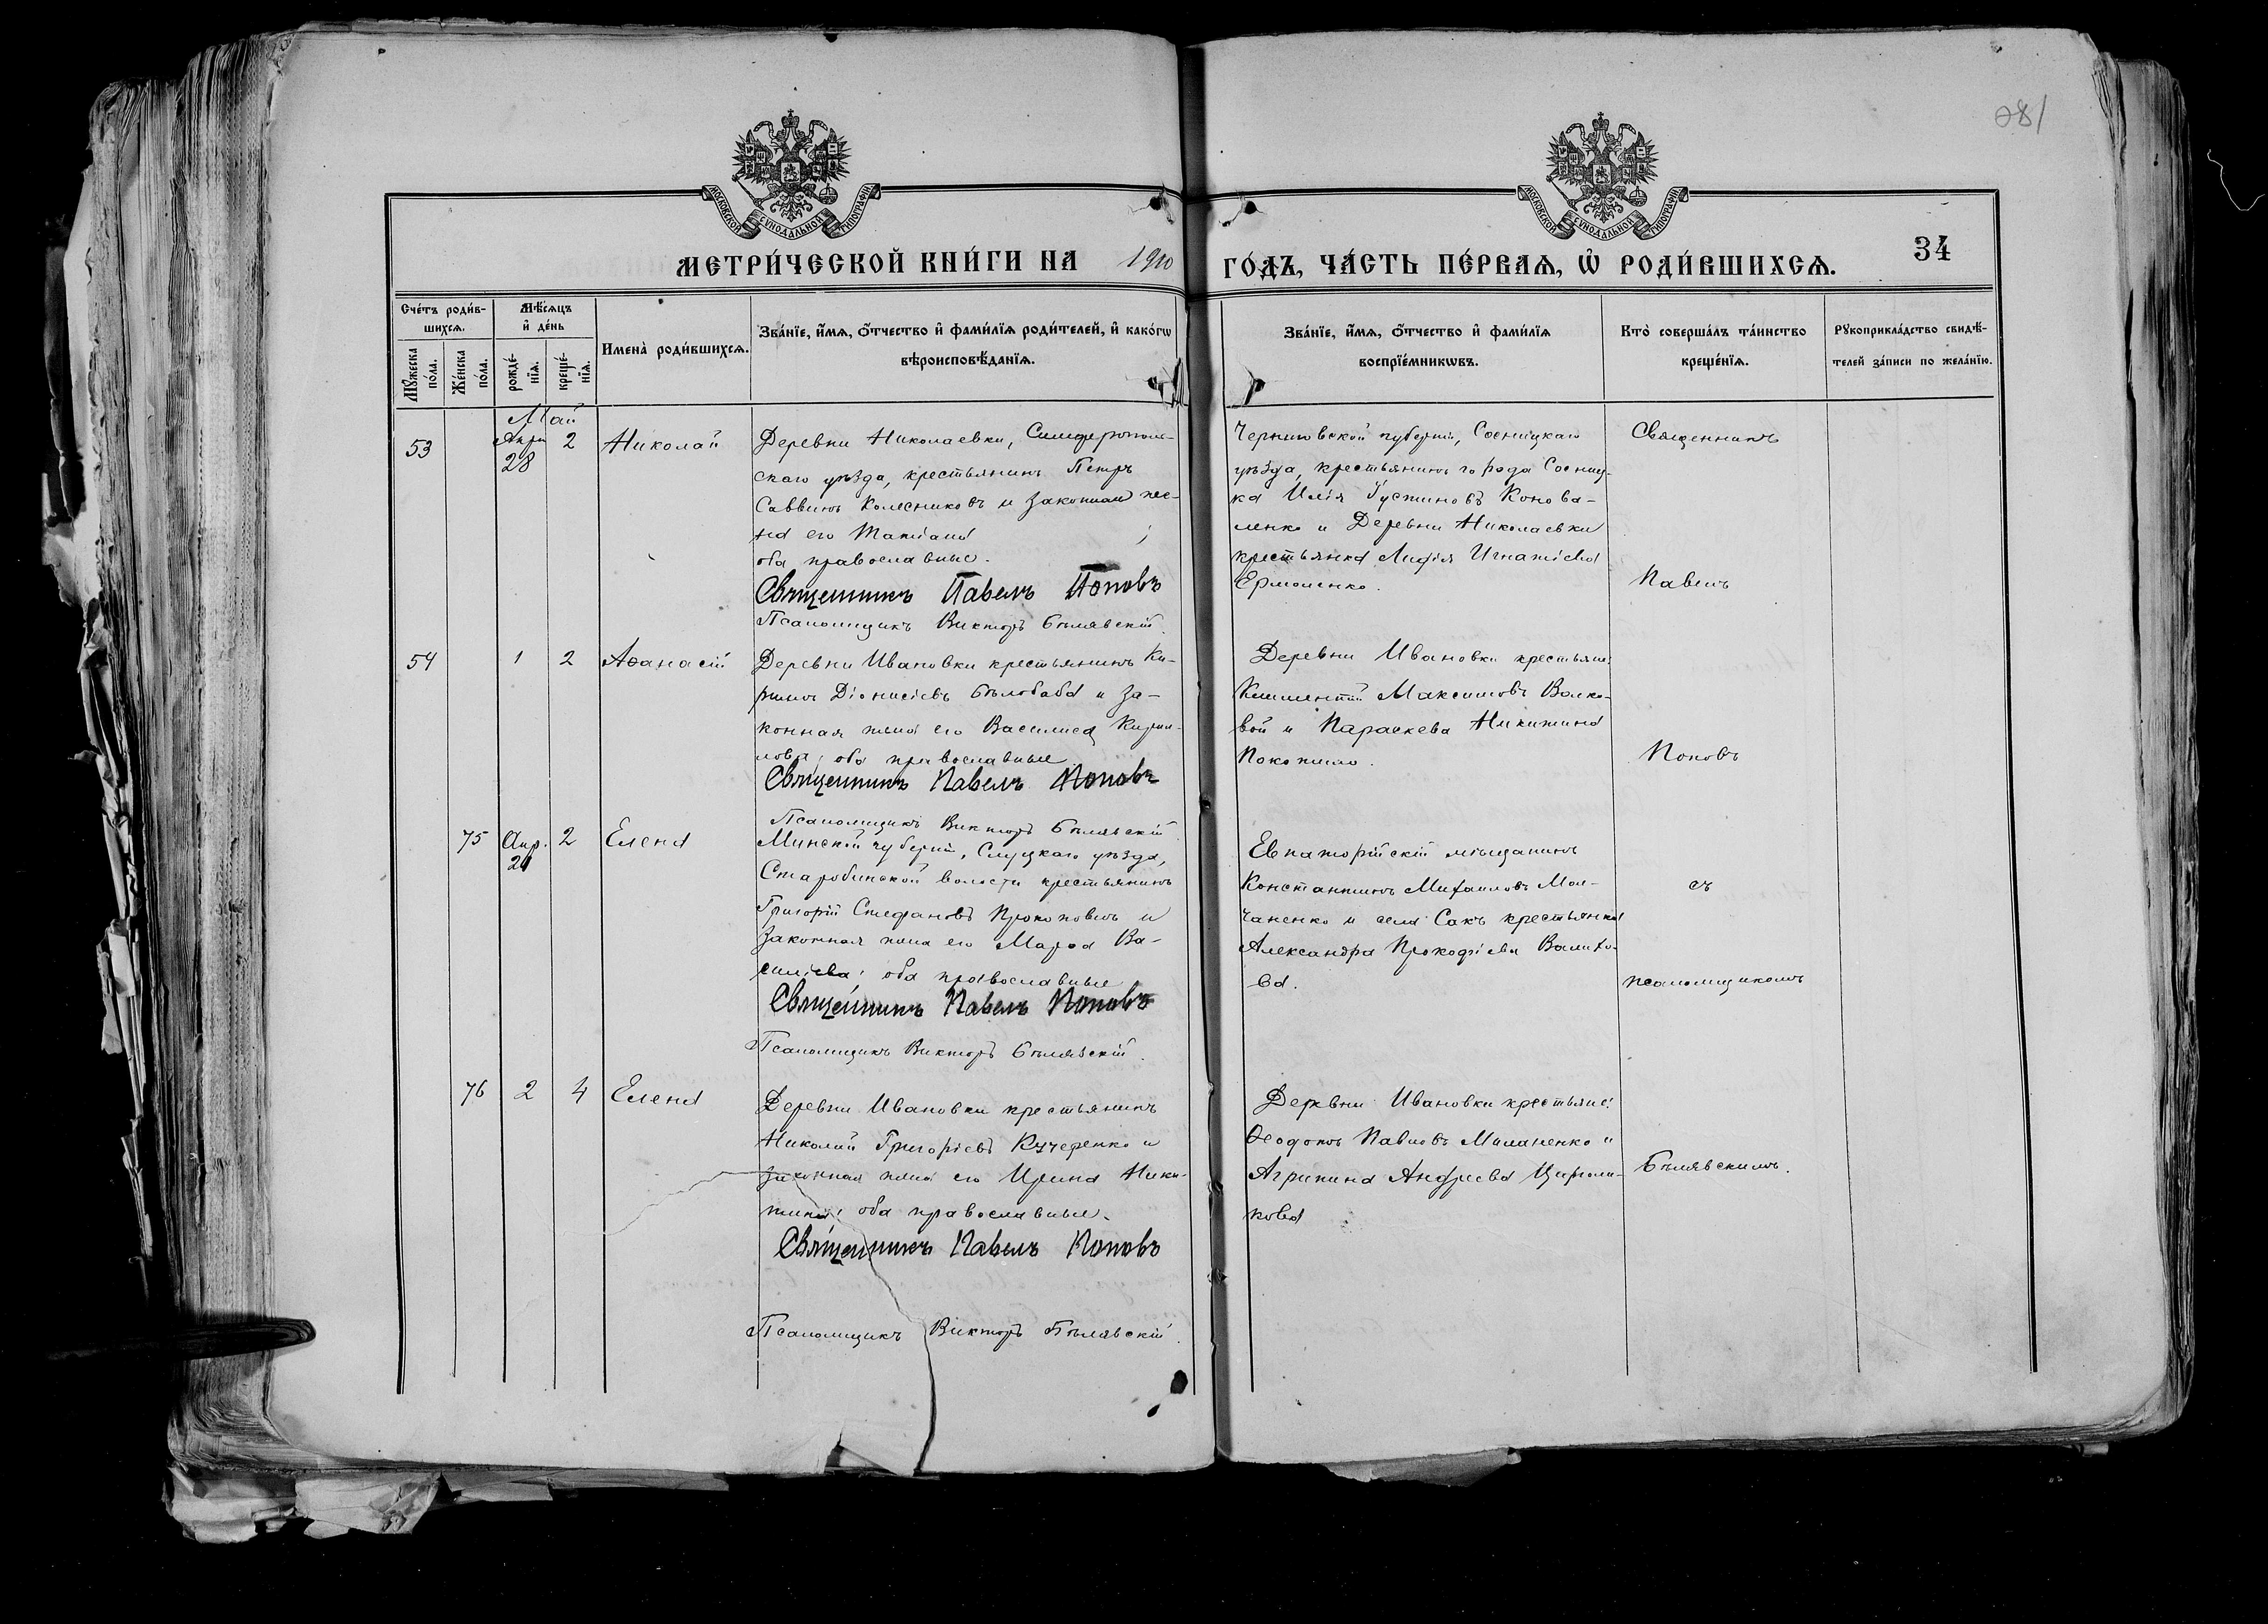 281
МОСКОВСКОЙ СѴНОДАЛЬНОЙ ТИПОГРАФІИ
МОСКОВСКОЙ СѴНОДАЛЬНОЙ ТИПОГРАФІИ
МЕТРИ́ЧЕСКОЙ КНИ́ГИ НА 1910 ГО́ДЪ, ЧА́СТЬ ПЕ́РВАѦ, Ѡ҆ РОДИ́ВШИХСѦ.
34
Сче́тъ роди́в-
шихсѧ.
Мѣ́сѧцъ
и҆ де́нь
Мꙋ́жеска
по́ла.
Же́нска
по́ла.
рожде́-
нїѧ.
креще́-
нїѧ.
Имена̀ роди́вшихсѧ.
Зва́нїе, и҆́мѧ, ѻ҆́тчество и҆ фами́лїѧ роди́телей, и҆ како́гѡ
вѣроисповѣ́данїѧ.
Зва́нїе, и҆́мѧ, ѻ҆́тчество и҆ фами́лїѧ
воспрїе́мникѡвъ.
Кто̀ соверша́лъ та́инство
креще́нїѧ.
Рꙋкоприкла́дство свидѣ́-
телей за́писи по жела́нїю.
Май
53
Апрѣ
28
2
Николай
Деревни Николаевки, Симферополь-
скаго уѣзда, крестьянинъ Петръ
Саввинъ Колесниковъ и законная же-
на его Татіана
оба православные.
Священникъ Павелъ Поповъ
Псаломщикъ Викторъ Бѣлявскій.
Черниговской губерніи, Сосницкаго
уѣзда, крестьянинъ города Сосниц-
ка Илія Іустиновъ Конова-
ленко и Деревни Николаевки
крестьянка Лидія Игнатіева
Ермоленко.
Священникъ
Павелъ
54
1
2
Аѳанасій
Деревни Ивановки крестьянинъ Ки-
рилъ Діонисіевъ Бѣлобаба и за-
конная жена его Василиса Кирил-
лова, оба православные
Священникъ Павелъ Поповъ
Псаломщикъ Викторъ Бѣлявскій
Деревни Ивановки крестьяне:
Климентій Максимовъ Волко-
вой и Параскева Никитина
Поповъ
75
Апр.
2
Елена
Минской губерніи, Слуцкаго уѣзда,
Старобинской волости крестьянинъ
Григорій Стефановъ Прокоповичъ и
законная жена его Марѳа Ва-
силіева, оба православные
Священникъ Павелъ Поповъ
Псаломщикъ Викторъ Бѣлявскій.
Евпаторійскій мѣщанинъ
Константинъ Михаиловъ Мол-
чаненко и села Сакъ крестьянка
Александра Прокофіева
ва.
съ
псаломщикомъ
76
2
4
Елена
Деревни Ивановки крестьянинъ
Николай Григоріевъ Кучеренко и
законная жена его Ирина Ники-
тина, оба православные.
Священникъ Павелъ Поповъ
Псаломщикъ Викторъ Бѣлявскій.
Деревни Ивановки крестьяне:
Ѳеодотъ Павловъ Миланенко и
Агрипина Андреева
кова
Бѣлявскимъ.